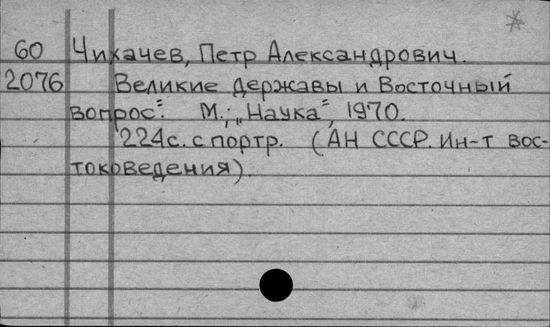 60 Чихачев, Петр Александрович.
2076 Великие державы и Восточный
вопрос. М.; „Наука“, 1970.
224с. с портр. (АН СССР. Ин-т вос-
токоведения)